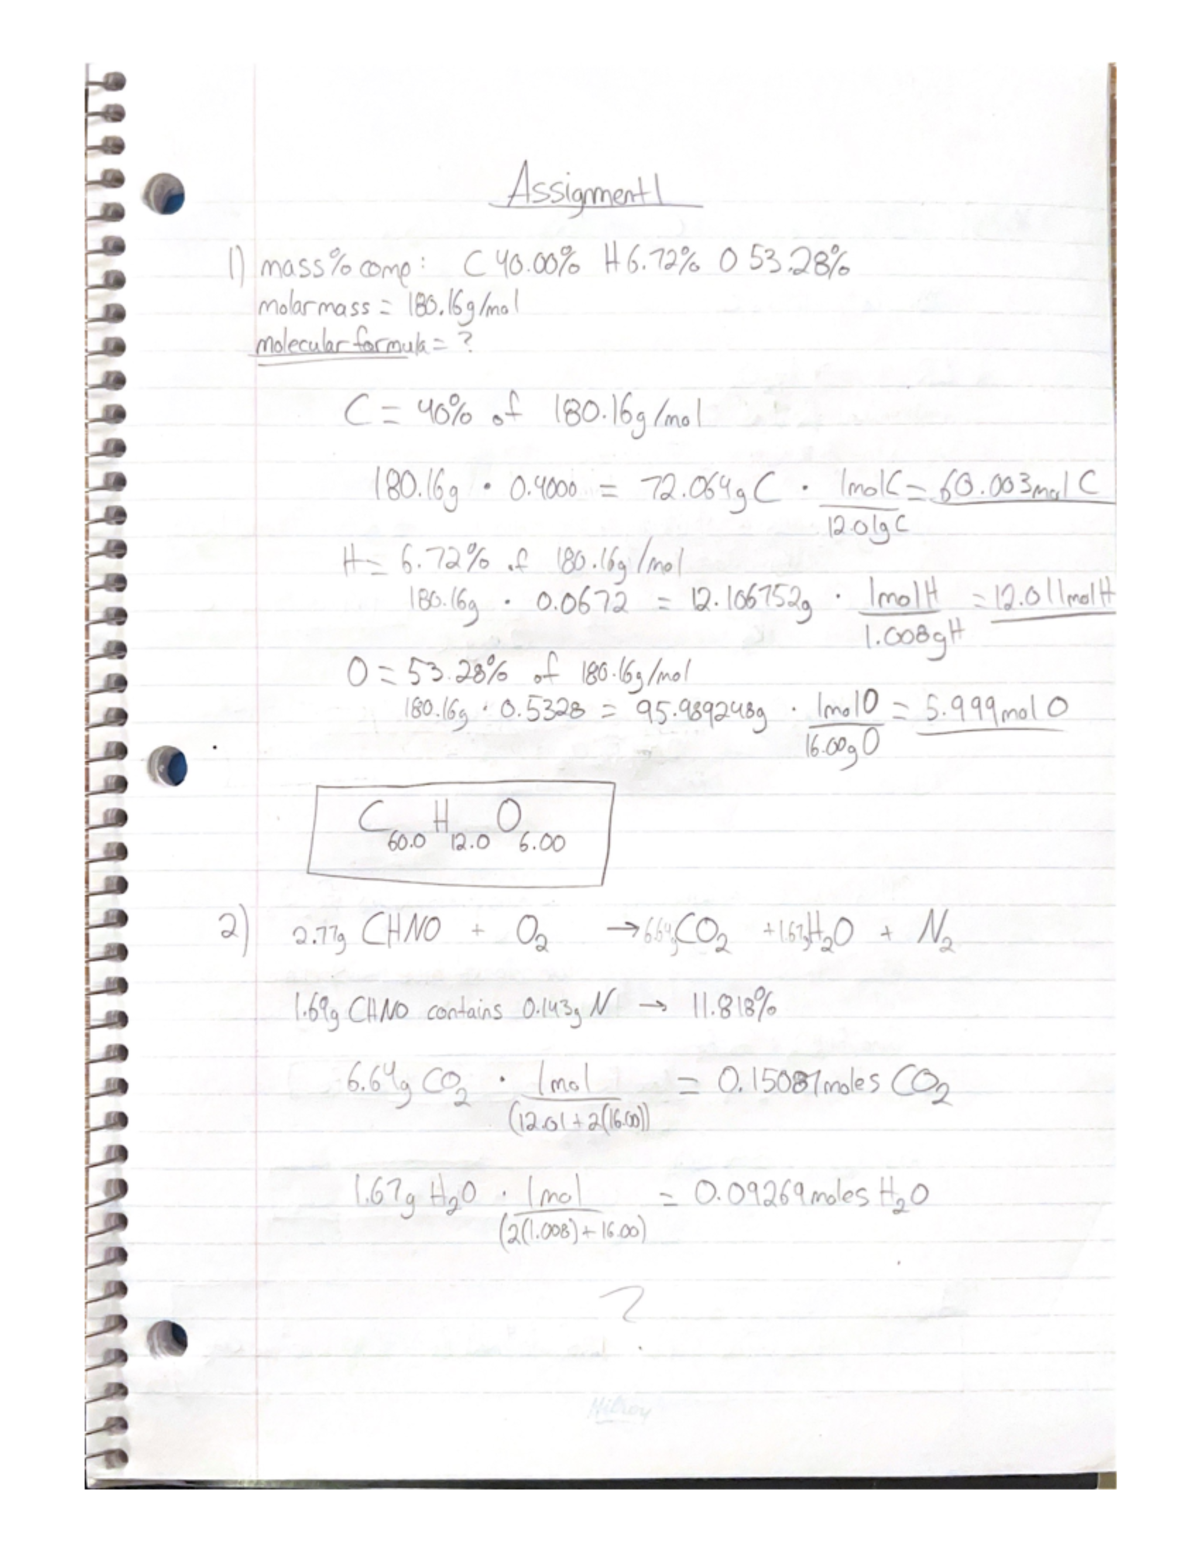 Assignment 1
1) mass % comp: C 40.00% H 6.72% O 53.28%
molar mass = 180.16g/mol
molecular formula = ?
C = 40% of 180.16g/mol
180.16g · 0.4000 = 72.064g C · 1molC/12.01gC = 60.003mol C
H = 6.72% of 180.16g/mol
180.16g · 0.0672 = 12.106752g · 1molH/1.008gH = 12.011molH
O = 53.28% of 180.16g/mol
180.16g · 0.5328 = 95.989248g · 1molO/16.00gO = 5.999mol O
C60.0 H12.0 O6.00
2) 2.77g CHNO + O2 → 6.64g CO2 + 1.67g H2O + N2
1.69g CHNO contains 0.143g N → 11.818%
6.64g CO2 · 1mol/(12.01 + 2(16.00)) = 0.15087moles CO2
1.67g H2O · 1mol/(2(1.008) + 16.00) = 0.09269moles H2O
?